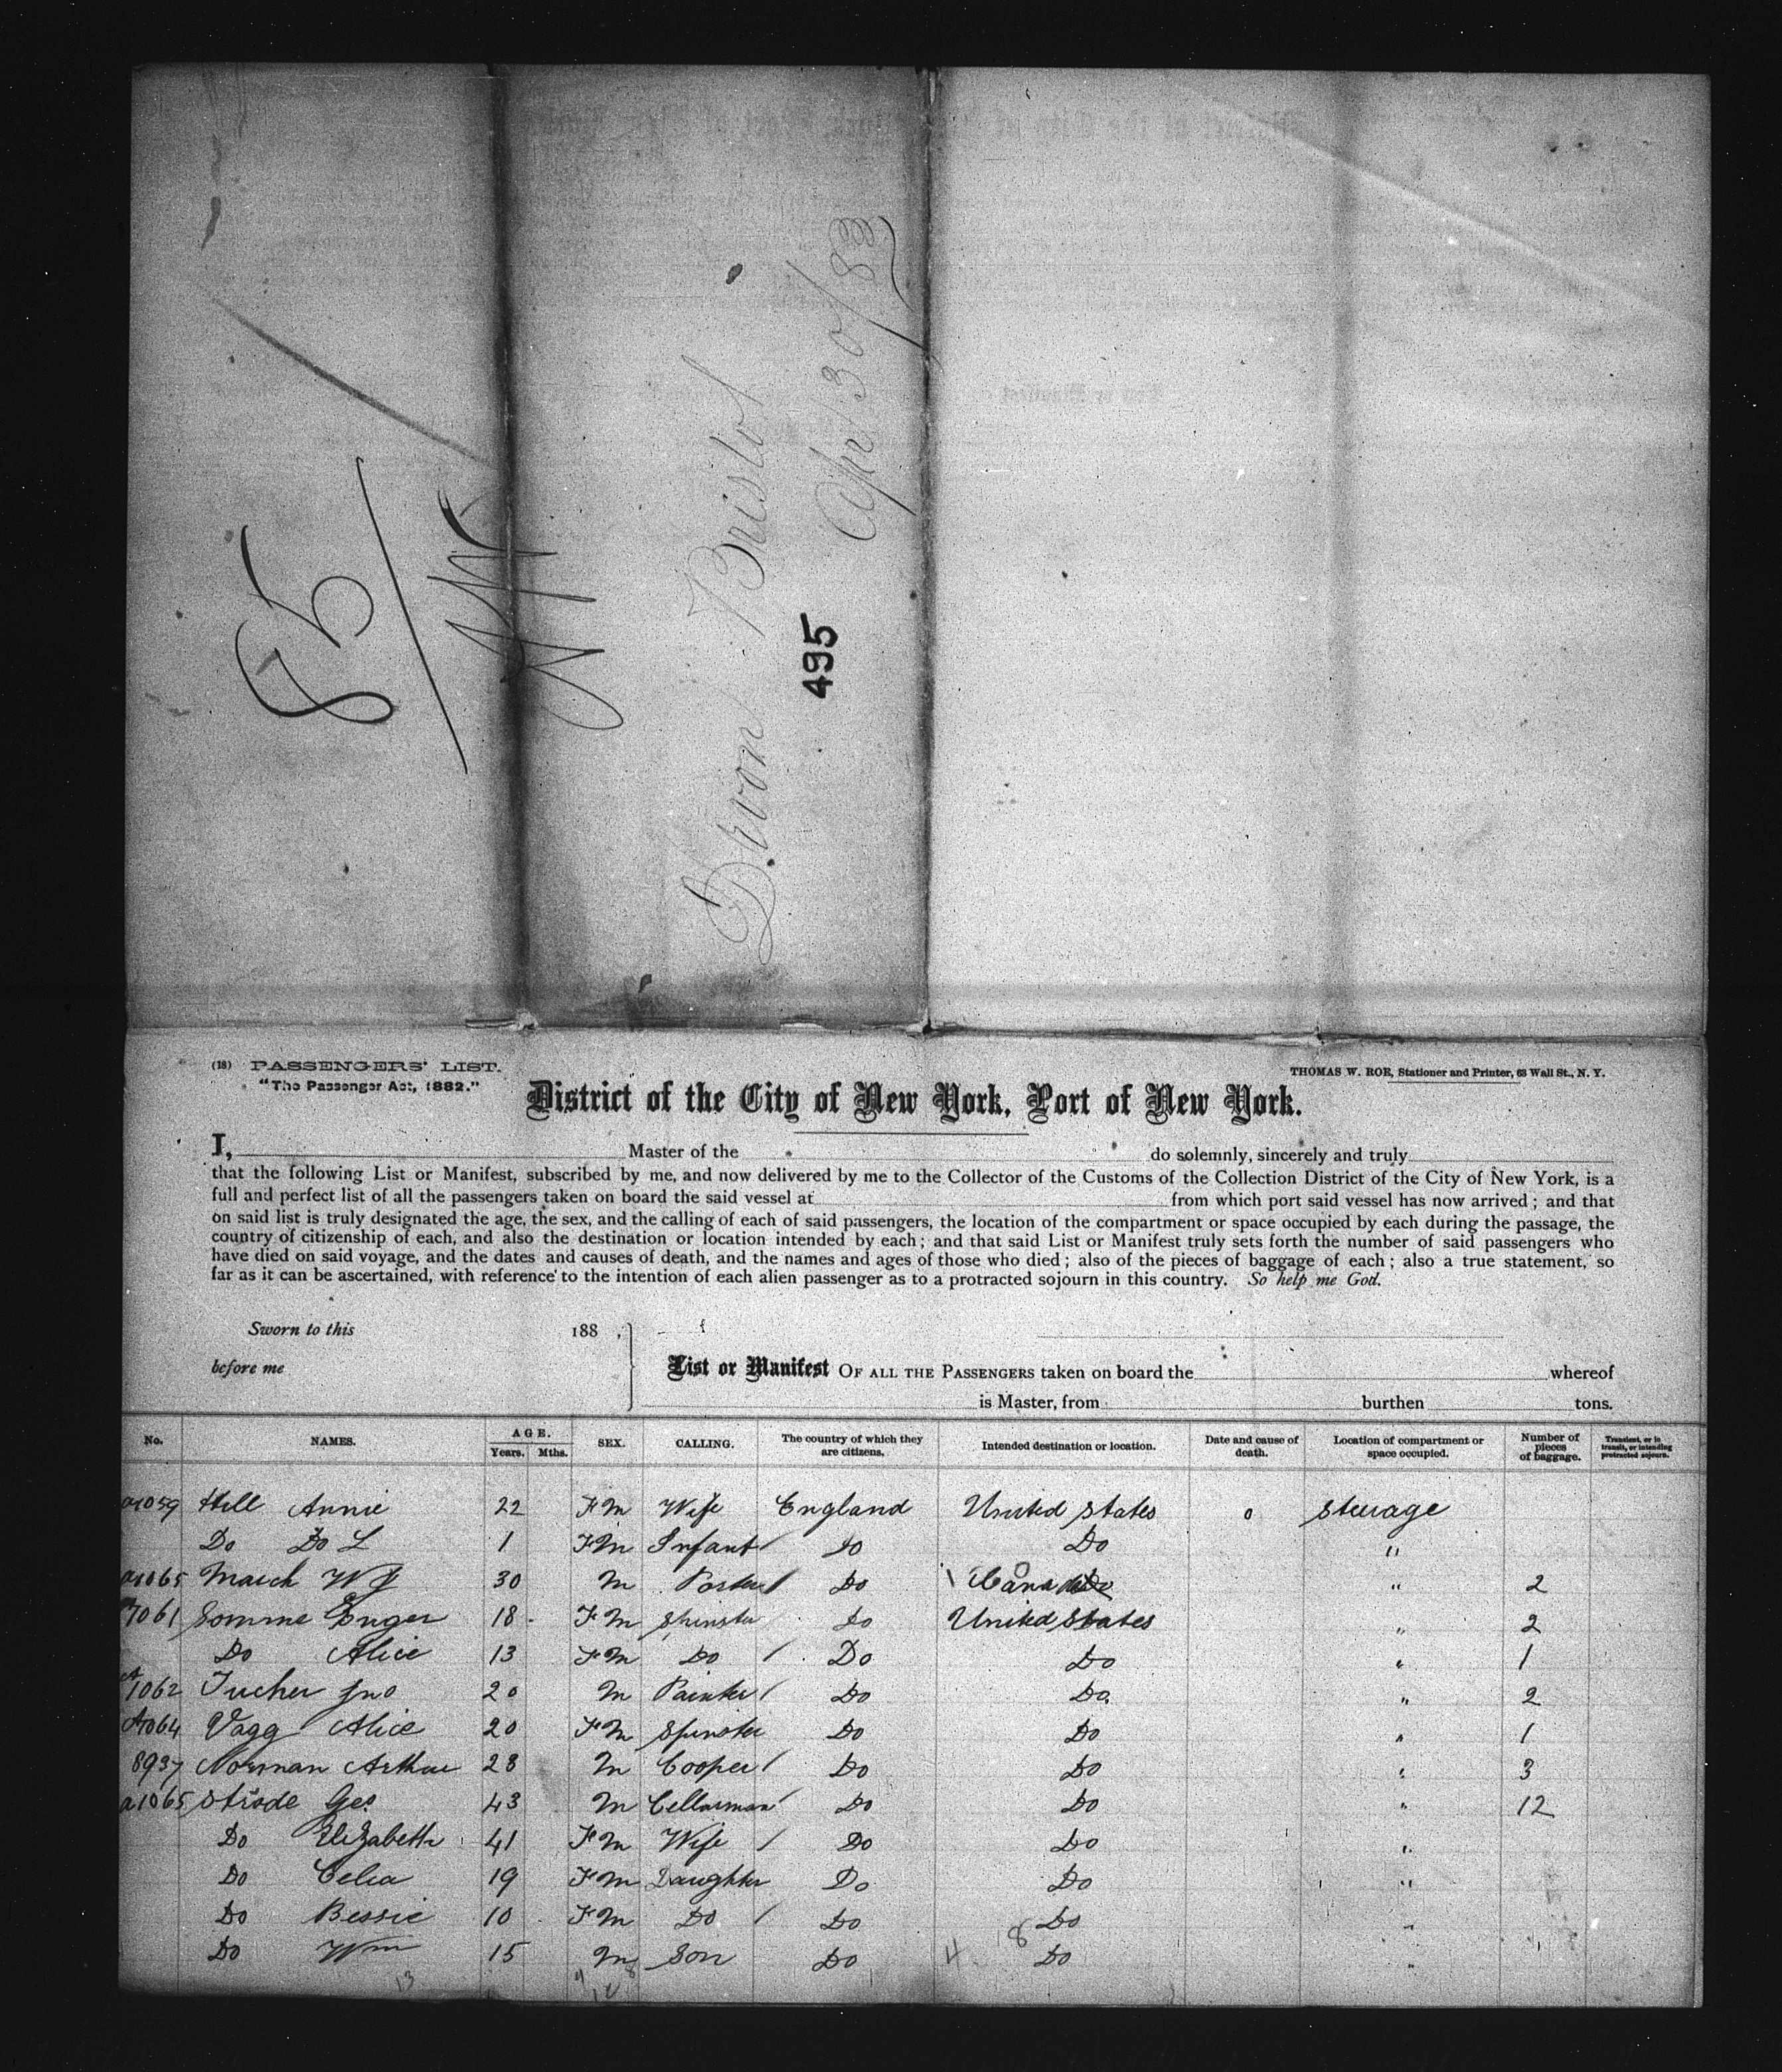 85
Devon Bristol
Apr 30/83
495
(18) PASSENGERS' LIST.
"The Passenger Act, 1882."
THOMAS W. ROE, Stationer and Printer, 63 Wall St., N. Y.
District of the City of New York, Port of New York.
I, Master of the do solemnly, sincerely and truly
that the following List or Manifest, subscribed by me, and now delivered by me to the Collector of the Customs of the Collection District of the City of New York, is a
full and perfect list of all the passengers taken on board the said vessel at from which port said vessel has now arrived; and that
on said list is truly designated the age, the sex, and the calling of each of said passengers, the location of the compartment or space occupied by each during the passage, the
country of citizenship of each, and also the destination or location intended by each; and that said List or Manifest truly sets forth the number of said passengers who
have died on said voyage, and the dates and causes of death, and the names and ages of those who died; also of the pieces of baggage of each; also a true statement, so
far as it can be ascertained, with reference to the intention of each alien passenger as to a protracted sojourn in this country. So help me God.
Sworn to this 188 ,
before me
List or Manifest OF ALL THE PASSENGERS taken on board the whereof
is Master, from burthen tons.
No. NAMES. AGE. Years. Mths. SEX. CALLING. The country of which they are citizens. Intended destination or location. Date and cause of death. Location of compartment or space occupied. Number of pieces of baggage. Transient, or in transit, or intending protracted sojourn.
a1059 Hill Annie 22 Fm Wife England United States o Steerage
Do Do L 1 Fm Infant Do Do "
a1065 March W 30 m Porter Do Canada " 2
7061 Somme 18 Fm Spinster Do United States " 2
Do Alice 13 Fm Do Do Do " 1
A1062 Tucker Jno 20 m Painter Do Do " 2
A7064 Vagg Alice 20 Fm Spinster Do Do " 1
8937 Norman Arthur 28 m Cooper Do Do " 3
a1065 Strode Geo 43 m Cellarman Do Do " 12
Do Elizabeth 41 Fm Wife Do Do "
Do Celia 19 Fm Daughter Do Do "
Do Bessie 10 Fm Do Do Do "
Do Wm 15 m Son Do 4 18 Do "
13